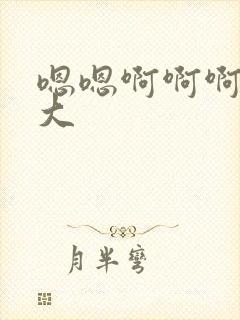 嗯嗯啊啊啊
大
月半弯